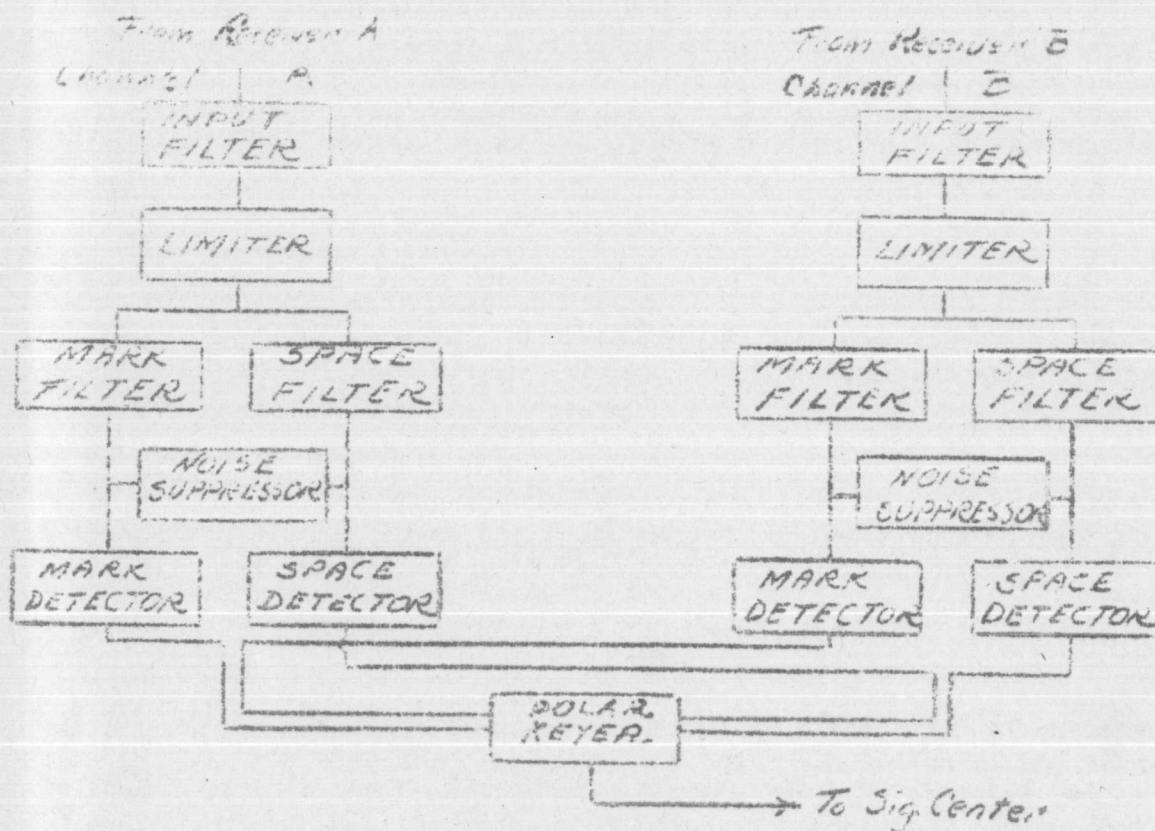 From Receiver A
Channel A
INPUT
FILTER
LIMITER
MARK
FILTER
SPACE
FILTER
NOISE
SUPPRESSOR
MARK
DETECTOR
SPACE
DETECTOR
From Receiver B
Channel B
INPUT
FILTER
LIMITER
MARK
FILTER
SPACE
FILTER
NOISE
SUPPRESSOR
MARK
DETECTOR
SPACE
DETECTOR
POLAR
KEYER
To Sig. Center